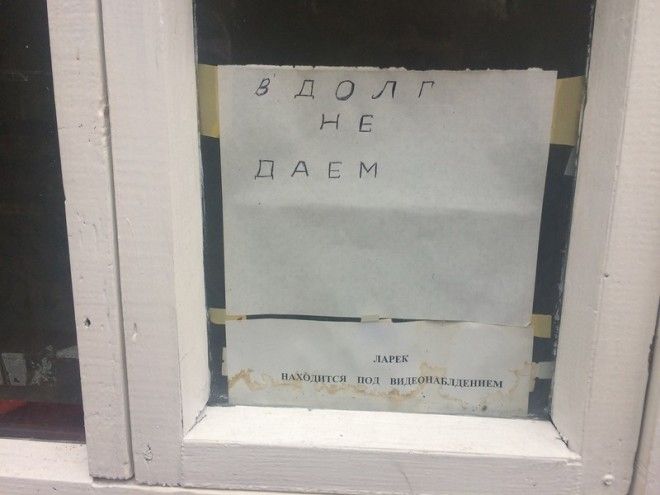 В ДОЛГ
НЕ
ДАЕМ
ЛАРЕК
НАХОДИТСЯ ПОД ВИДЕОНАБЛДЕНИЕМ